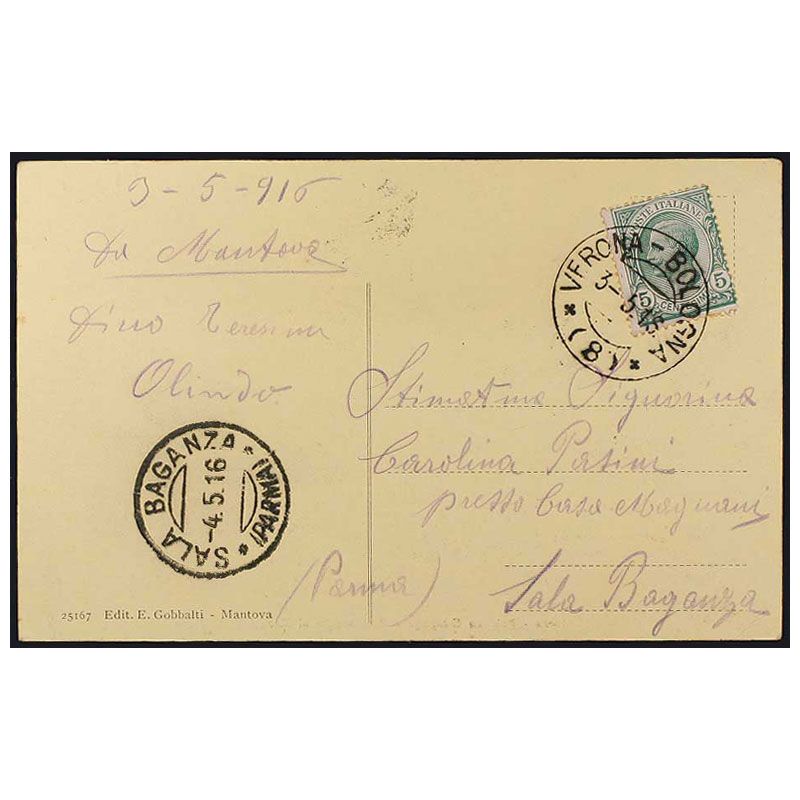 3-5-916
Da Mantova
Dino
Olindo
SALA BAGANZA * (PARMA) *
-4.5.16
25167 Edit. E. Gobbalti - Mantova
POSTE ITALIANE
5 CENTESIMI 5
* VERONA - BOLOGNA * (8)
3-5.16
Stimatma Signorina
Carolina Pasini
presso Casa Magnani
(Parma) Sala Baganza